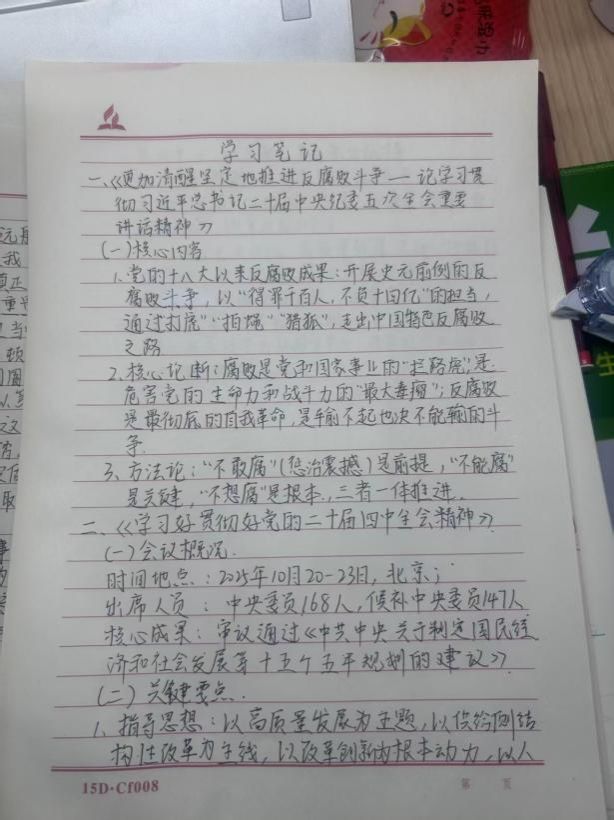 学习笔记
一、《更加清醒坚定地推进反腐败斗争——论学习贯
彻习近平总书记二十届中央纪委五次全会重要
讲话精神》
(一)核心内容
1、党的十八大以来反腐败成果：开展史无前例的反
腐败斗争，以“得罪千百人，不负十四亿”的担当，
通过打虎”“拍蝇”“猎狐”，走出中国特色反腐败
之路
2、核心论断：腐败是党和国家事业的“拦路虎”，是
危害党的生命力和战斗力的“最大毒瘤”；反腐败
是最彻底的自我革命，是输不起也决不能输的斗
争.
3、方法论：“不敢腐”(惩治震撼)是前提，“不能腐”
是关键，“不想腐”是根本，三者一体推进.
二、《学习好贯彻好党的二十届四中全会精神》
(一)会议概况.
时间地点：2025年10月20-23日，北京；
出席人员：中央委员168人，候补中央委员147人
核心成果：审议通过《中共中央关于制定国民经
济和社会发展第十五个五年规划的建议》
(二)关键要点.
1、指导思想：以高质量发展为主题，以供给侧结
构性改革为主线，以改革创新为根本动力，以人
15D·Cf008
第 页
无
我
真正
重
当
顿
周
以
立
取
事
的
生